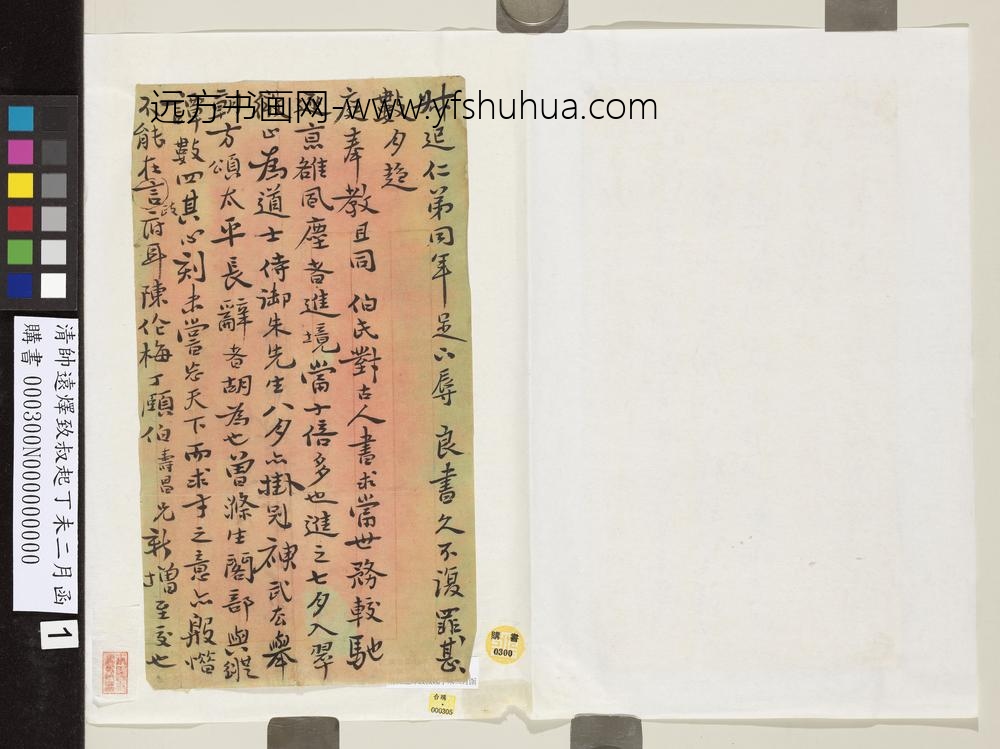 远方书画网-www.yfshuhua.com
仁弟同年足下辱 良書久不復罪甚
數月
度奉 教且同 伯氏對古人書求當世務較馳
意雖風塵者進境當十倍多也進之七夕入翠
為道士侍御朱先生八月亦掛別
方頌太平長辭者胡為也曾滌生閣部與
數四其心刻未嘗忘天下而求才之意亦殷
不能在言 耳陳伦梅丁頤伯壽昌兄新 至交也
清帥遠燡致叔起丁未二月函
購書 000300N000000000
1
購書
0300
台購
000305